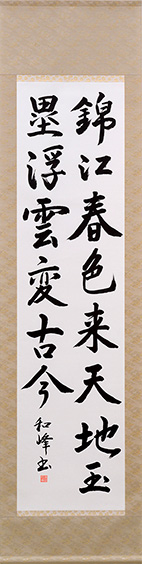 錦江春色来天地玉
塁浮雲変古今
和峰書